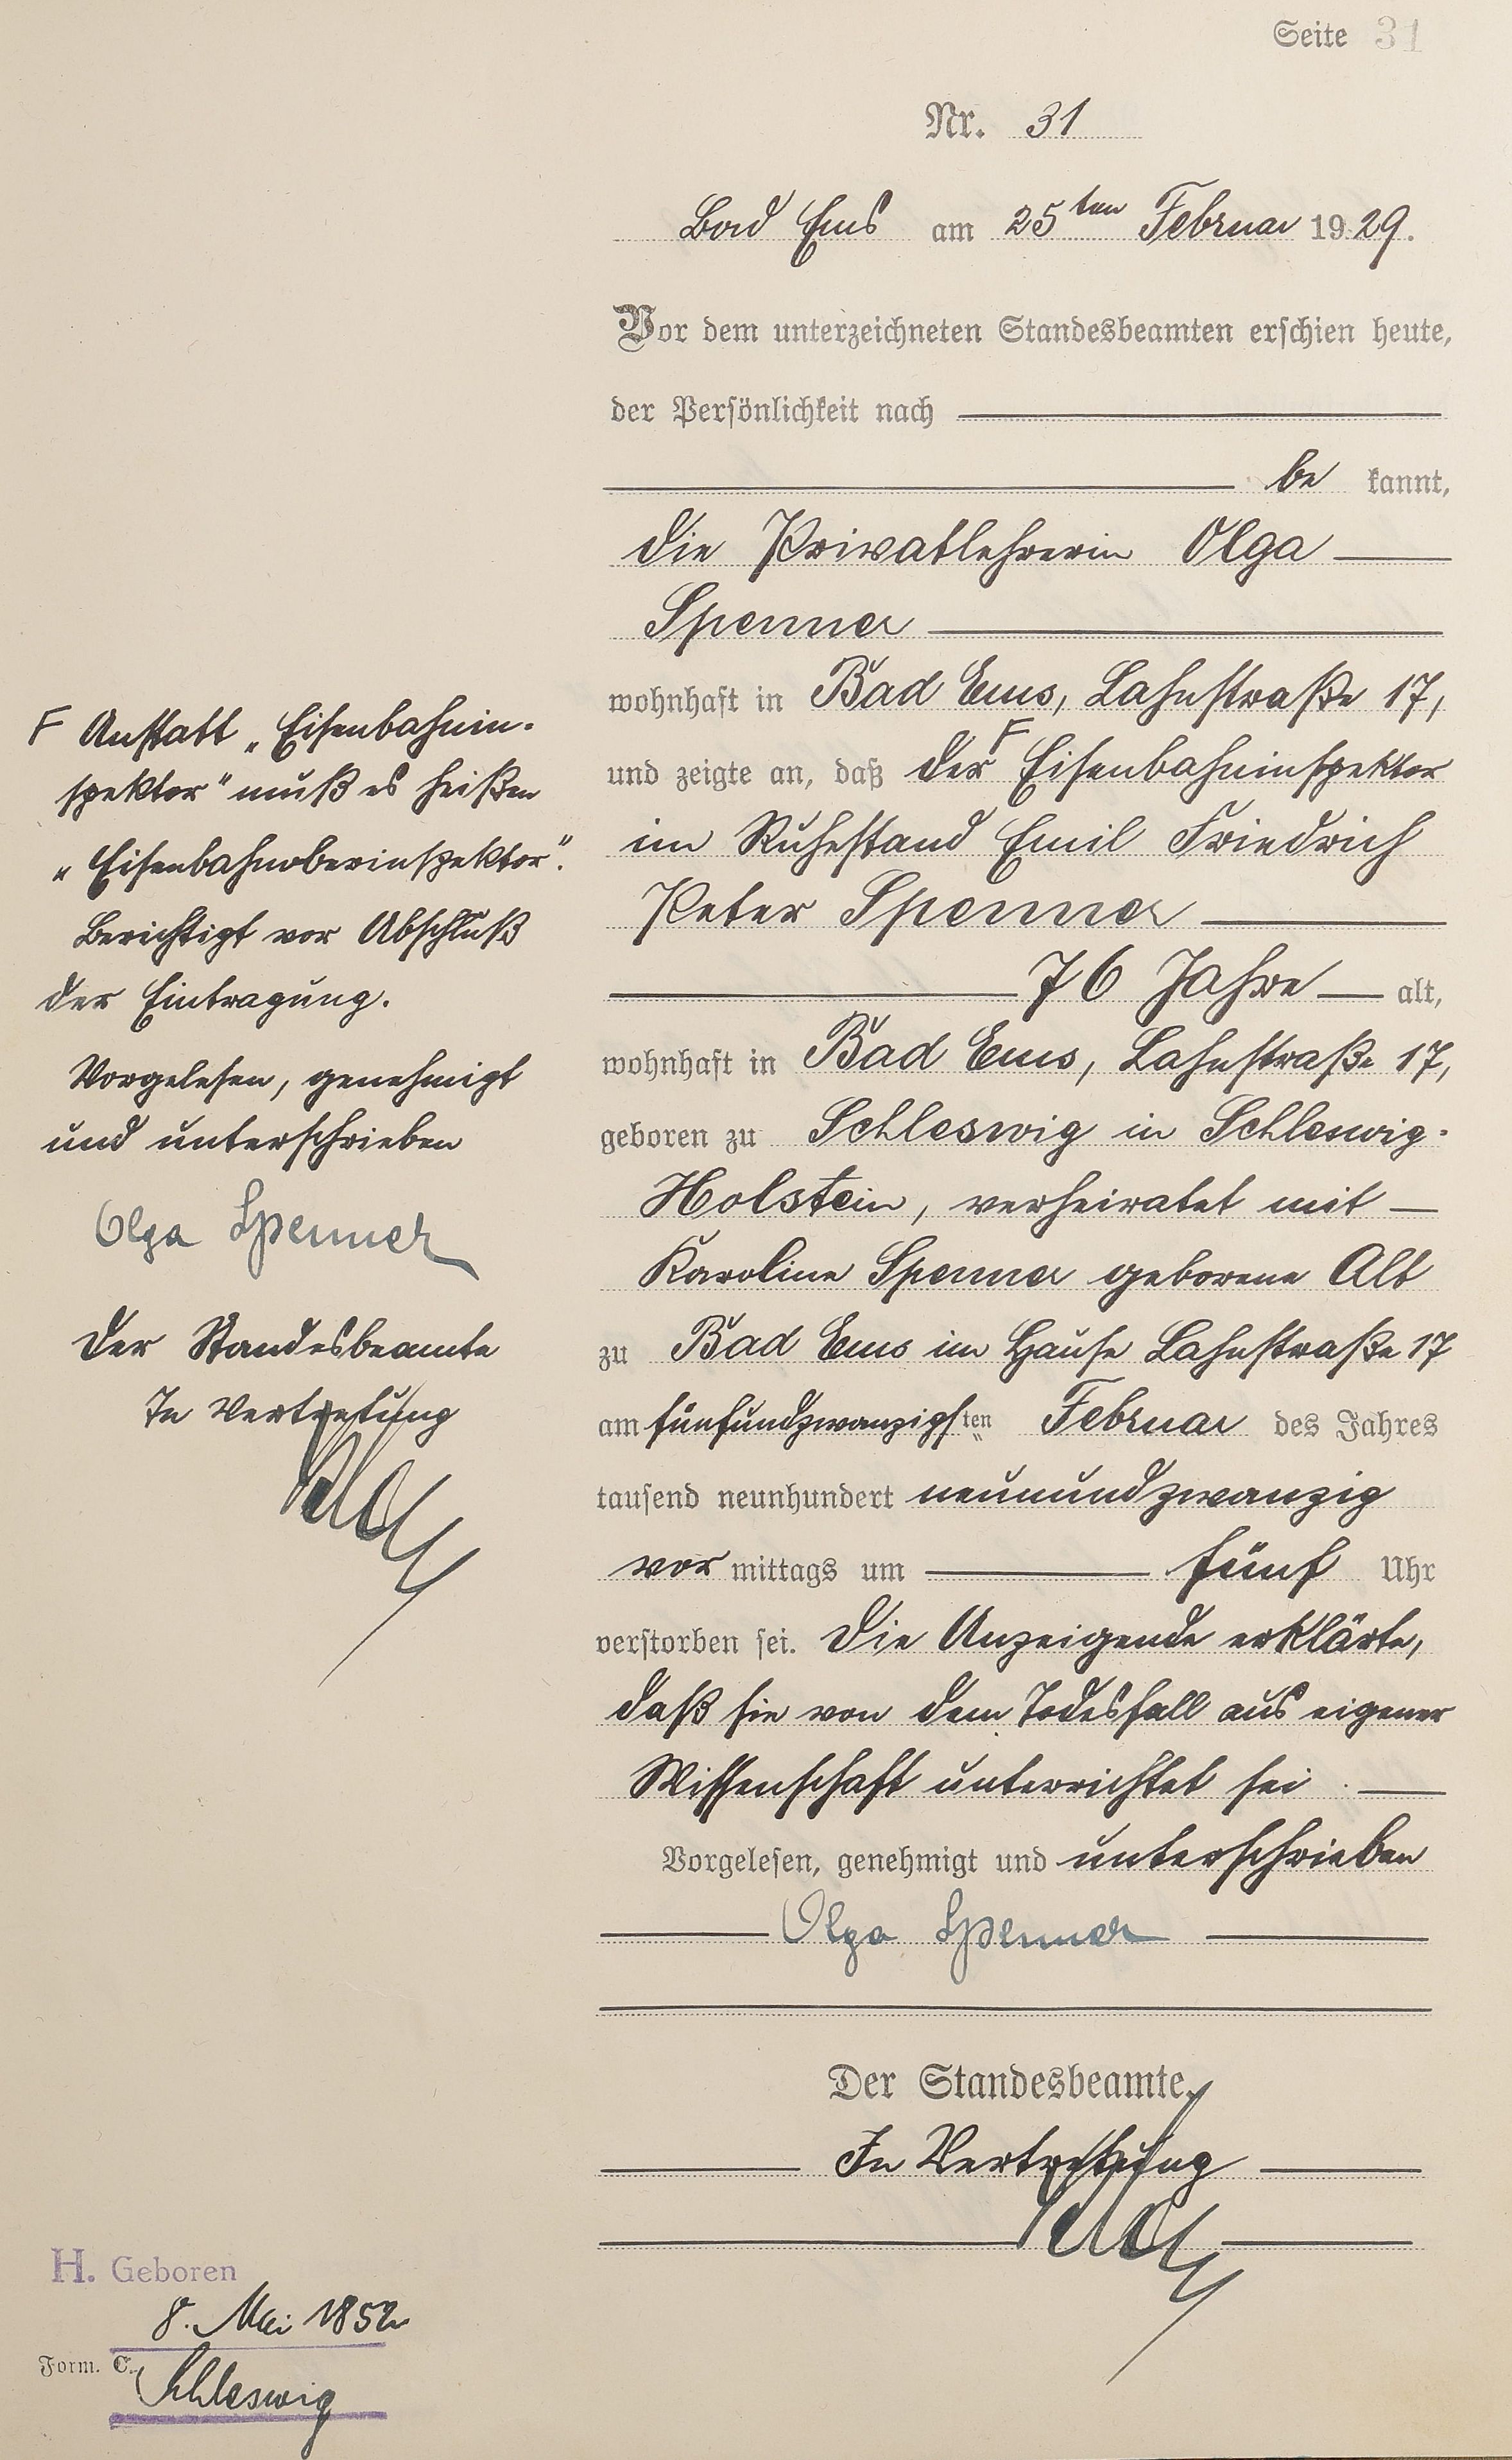 Seite 31
Nr. 31
Bad Ems am 25ten Februar 1929.
Vor dem unterzeichneten Standesbeamten erschien heute,
der Persönlichkeit nach
be kannt,
die Privatlehrerin Olga
Spenner
wohnhaft in Bad Ems, Lahnstraße 17,
und zeigte an, daß der F Eisenbahninspektor
im Ruhestand Emil Friedrich
Peter Spenner
76 Jahre alt,
wohnhaft in Bad Ems, Lahnstraße 17,
geboren zu Schleswig in Schleswig-
Holstein, verheiratet mit
Karoline Spenner geborene Alt
zu Bad Ems im Hause Lahnstraße 17
am fünfundzwanzigsten Februar des Jahres
tausend neunhundert neunundzwanzig
vor mittags um fünf Uhr
verstorben sei. Die Anzeigende erklärte,
daß sie von dem Todesfall aus eigener
Wissenschaft unterrichtet sei.
Vorgelesen, genehmigt und unterschrieben
Olga Spenner
Der Standesbeamte.
In Vertretung
F Anstatt „Eisenbahnin-
spektor" muß es heißen
„Eisenbahnoberinspektor".
Berichtigt vor Abschluß
der Eintragung.
Vorgelesen, genehmigt
und unterschrieben
Olga Spenner
Der Standesbeamte
In Vertretung
H. Geboren
8. Mai 1852
Form. C.
Schleswig